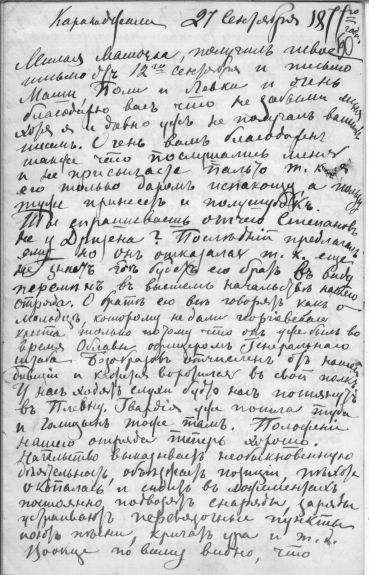 27 Сентября 187
Милая Машочка, получилъ твое
письмо отъ 12го сентября и письмо
Мами Поли и Левки и очень
благодарю васъ что не забыли меня
хотя я и давно уже не получалъ вашихъ
писемъ. Очень вамъ благодаренъ
также что послушались меня
и не присылаете пальто т. к. я
его только даромъ испакощу, а пользу
туже принесетъ и полушубокъ.
Ты спрашиваешь отчего Степановъ
не у Дризена? Послѣдній предлагалъ
ему но онъ отказался т. к. еще
не знаетъ какъ будетъ его братъ въ виду
перемѣнъ въ высшемъ начальствѣ нашего
отряда. О братѣ его все говорятъ какъ о
молодцѣ, которому не дали георгіевскаго
креста только потому что онъ уже былъ во
время офицеромъ Генеральнаго
штаба. отчисленъ отъ нашей
дивизіи и кажется воротился въ свой полкъ
У насъ ходятъ слухи будто насъ потянутъ
въ Плевну. Гвардія уже пошла туда
и Голицынъ тоже тамъ. Положеніе
нашего отряда теперь хорошо.
Начальство выказываетъ необыкновенную
дѣятельность, объѣзжаетъ позиціи, пѣхота
окопалась и сидитъ въ ложементахъ
постоянно подвозятъ снаряды, заряды
устраиваютъ перевязочные пункты
поютъ пѣсни, кричатъ ура и т. д.
Вообще по всему видно, что